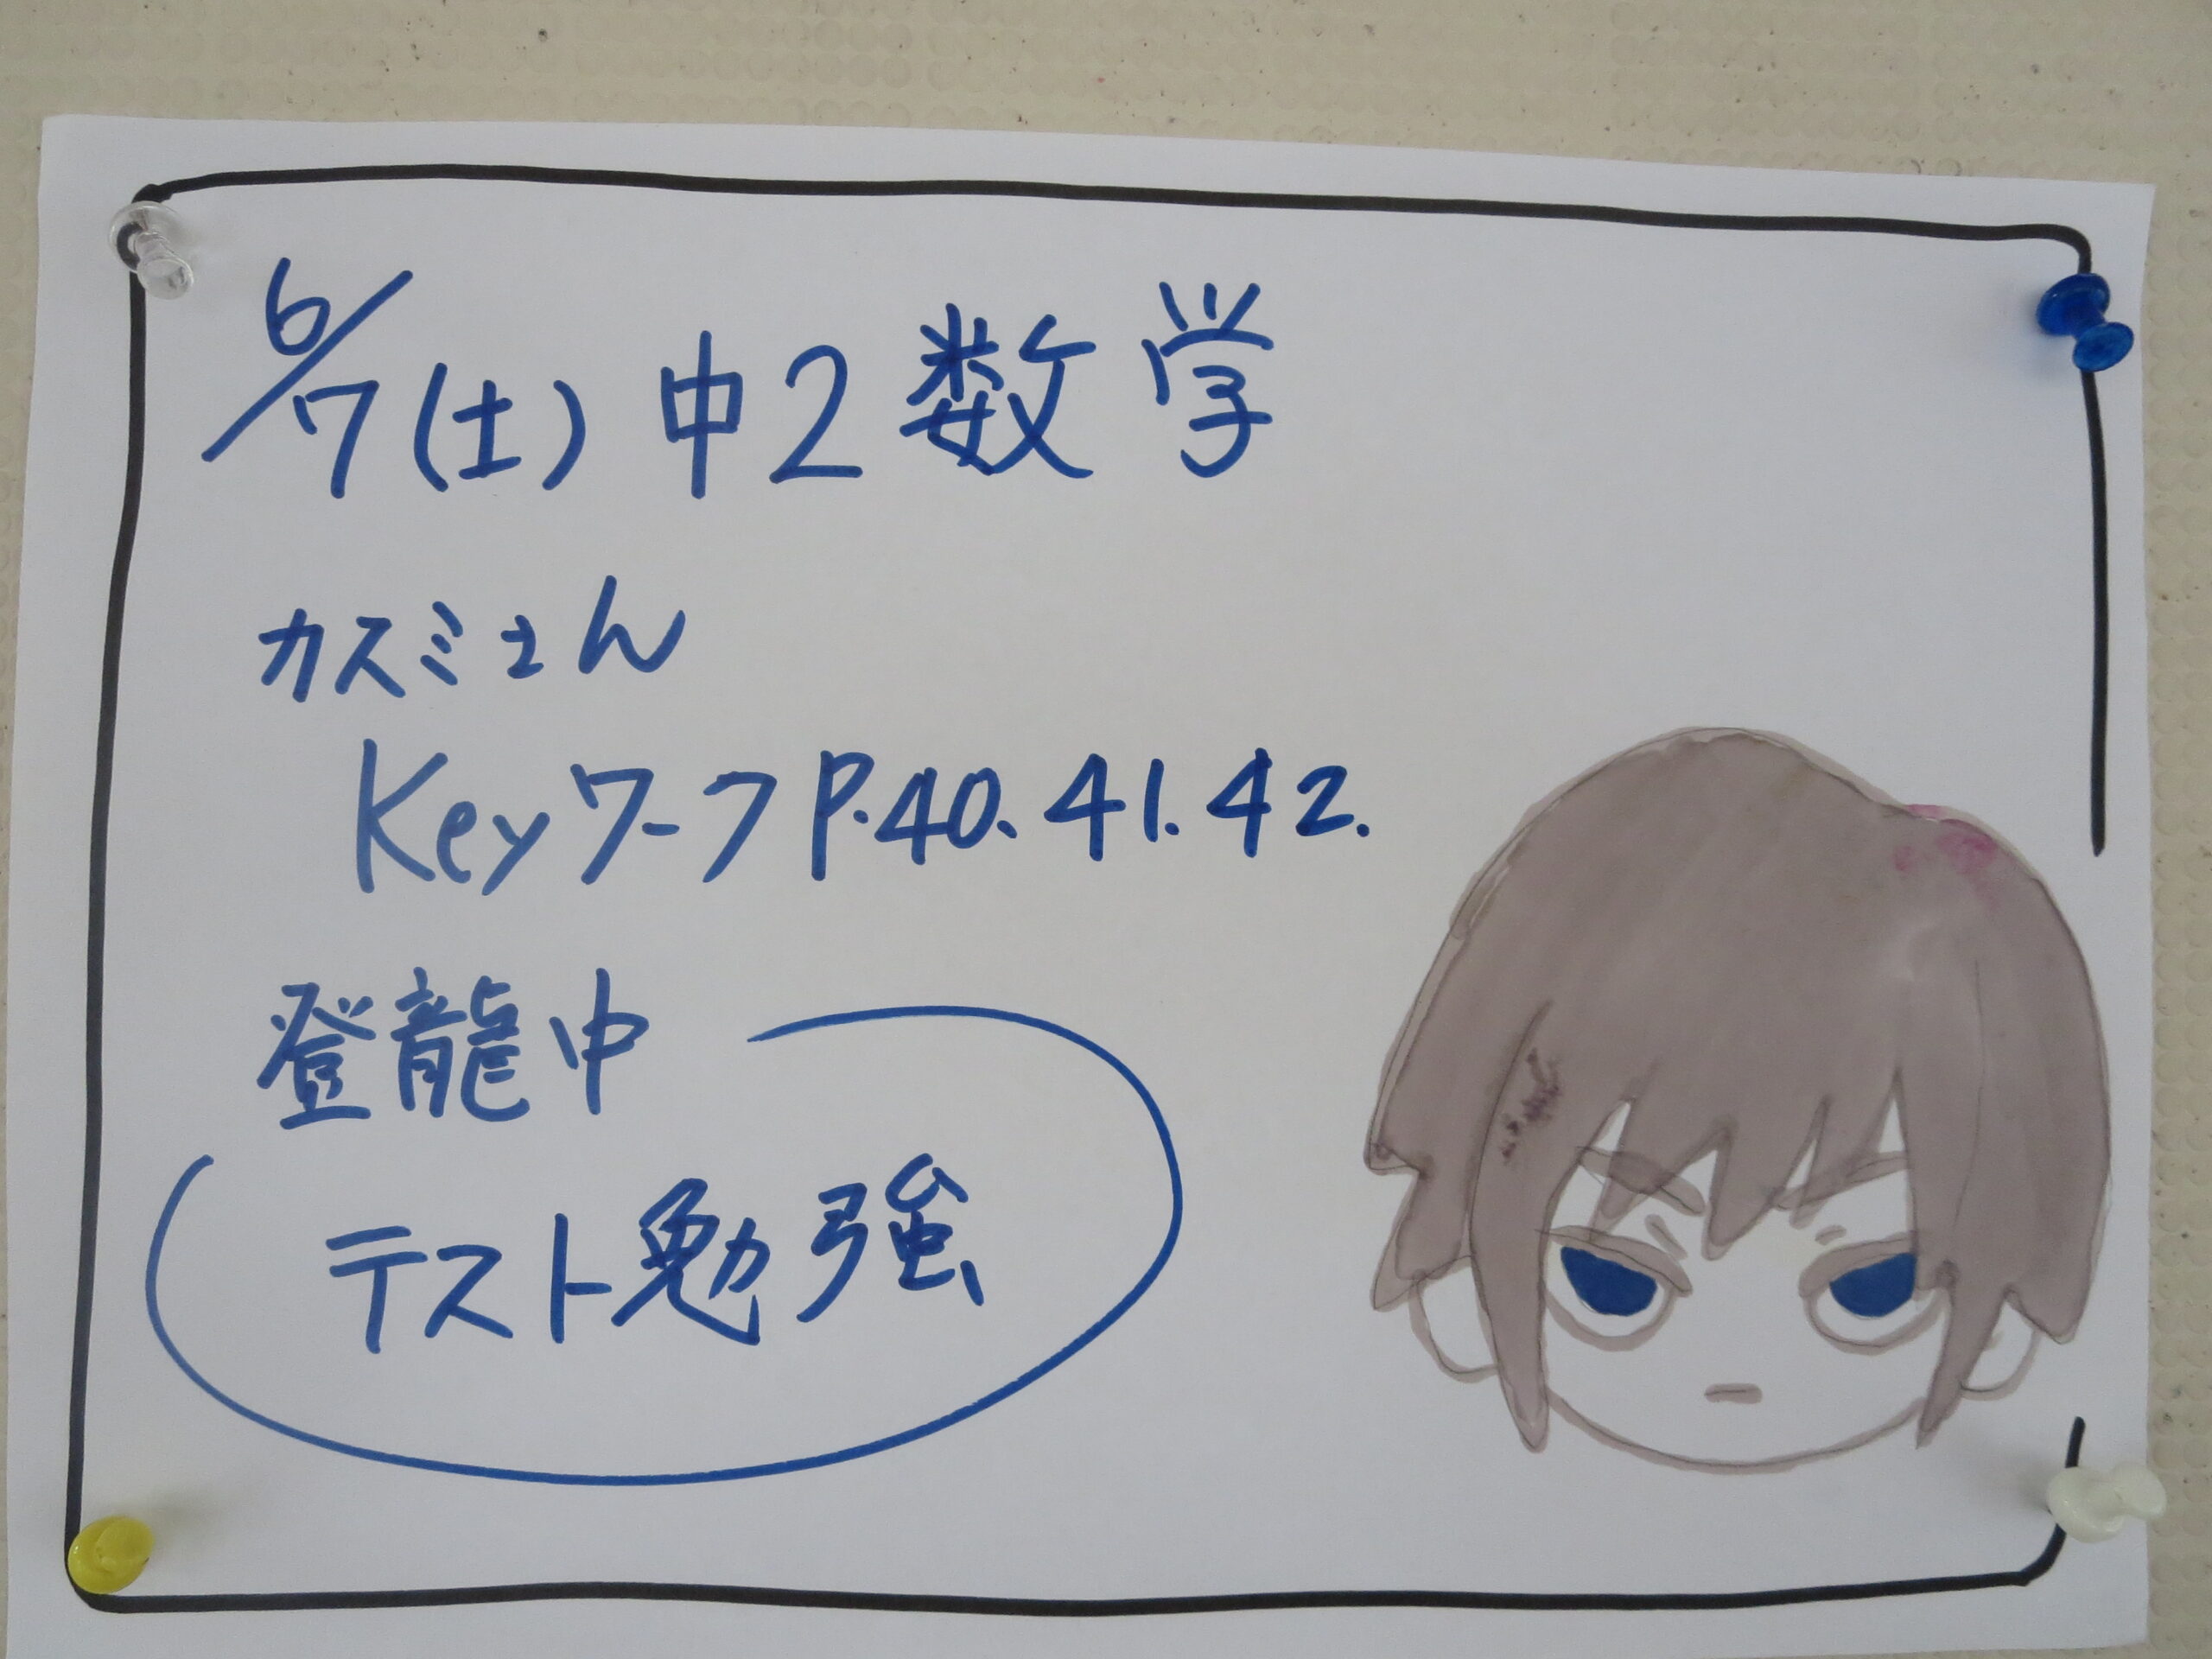 6/7(土) 中2数学
カスミさん
Keyワーク P.40.41.42.
登龍中
テスト勉強